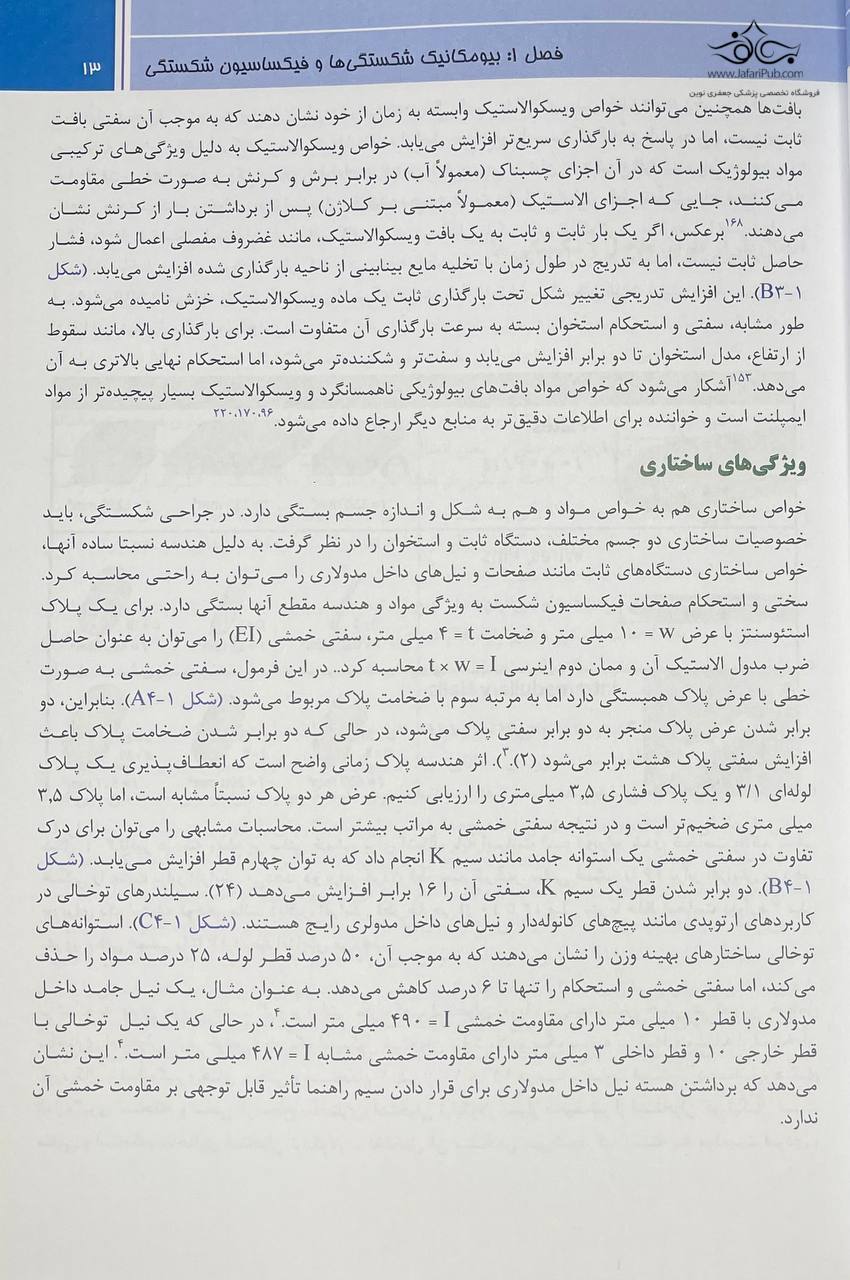 ۱۳
فصل ۱: بیومکانیک شکستگی‌ها و فیکساسیون شکستگی
بنافن
www.JafariPub.com
فروشگاه تخصصی پزشکی جعفری نوین
بافت‌ها همچنین می‌توانند خواص ویسکوالاستیک وابسته به زمان از خود نشان دهند که به موجب آن سفتی بافت
ثابت نیست، اما در پاسخ به بارگذاری سریع‌تر افزایش می‌یابد. خواص ویسکوالاستیک به دلیل ویژگی‌های ترکیبی
مواد بیولوژیک است که در آن اجزای چسبناک (معمولاً آب) در برابر برش و کرنش به صورت خطی مقاومت
می‌کنند، جایی که اجزای الاستیک (معمولاً مبتنی بر کلاژن) پس از برداشتن بار از کرنش نشان
می‌دهند.۱۶۸برعکس، اگر یک بار ثابت و ثابت به یک بافت ویسکوالاستیک، مانند غضروف مفصلی اعمال شود، فشار
حاصل ثابت نیست، اما به تدریج در طول زمان با تخلیه مایع بینابینی از ناحیه بارگذاری شده افزایش می‌یابد. (شکل
B۳-۱). این افزایش تدریجی تغییر شکل تحت بارگذاری ثابت یک ماده ویسکوالاستیک، خزش نامیده می‌شود. به
طور مشابه، سفتی و استحکام استخوان بسته به سرعت بارگذاری آن متفاوت است. برای بارگذاری بالا، مانند سقوط
از ارتفاع، مدل استخوان تا دو برابر افزایش می‌یابد و سفت‌تر و شکننده‌تر می‌شود، اما استحکام نهایی بالاتری به آن
می‌دهد.۱۵۳آشکار می‌شود که خواص مواد بافت‌های بیولوژیکی ناهمسانگرد و ویسکوالاستیک بسیار پیچیده‌تر از مواد
ایمپلنت است و خواننده برای اطلاعات دقیق‌تر به منابع دیگر ارجاع داده می‌شود.۲۲۰،۱۷۰،۹۶
ویژگی‌های ساختاری
خواص ساختاری هم به خواص مواد و هم به شکل و اندازه جسم بستگی دارد. در جراحی شکستگی، باید
خصوصیات ساختاری دو جسم مختلف، دستگاه ثابت و استخوان را در نظر گرفت. به دلیل هندسه نسبتا ساده آنها،
خواص ساختاری دستگاه‌های ثابت مانند صفحات و نیل‌های داخل مدولاری را می‌توان به راحتی محاسبه کرد.
سختی و استحکام صفحات فیکساسیون شکست به ویژگی مواد و هندسه مقطع آنها بستگی دارد. برای یک پلاک
استئوسنتز با عرض w = ۱۰ میلی متر و ضخامت t = ۴ میلی متر، سفتی خمشی (EI) را می‌توان به عنوان حاصل
ضرب مدول الاستیک آن و ممان دوم اینرسی t × w = I محاسبه کرد.. در این فرمول، سفتی خمشی به صورت
خطی با عرض پلاک همبستگی دارد اما به مرتبه سوم با ضخامت پلاک مربوط می‌شود. (شکل A۴-۱). بنابراین، دو
برابر شدن عرض پلاک منجر به دو برابر سفتی پلاک می‌شود، در حالی که دو برابر شدن ضخامت پلاک باعث
افزایش سفتی پلاک هشت برابر می‌شود (۲).۳). اثر هندسه پلاک زمانی واضح است که انعطاف‌پذیری یک پلاک
لوله‌ای ۳/۱ و یک پلاک فشاری ۳,۵ میلی‌متری را ارزیابی کنیم. عرض هر دو پلاک نسبتاً مشابه است، اما پلاک ۳,۵
میلی متری ضخیم‌تر است و در نتیجه سفتی خمشی به مراتب بیشتر است. محاسبات مشابهی را می‌توان برای درک
تفاوت در سفتی خمشی یک استوانه جامد مانند سیم K انجام داد که به توان چهارم قطر افزایش می‌یابد. (شکل
B۴-۱). دو برابر شدن قطر یک سیم K، سفتی آن را ۱۶ برابر افزایش می‌دهد (۲۴). سیلندرهای توخالی در
کاربردهای ارتوپدی مانند پیچ‌های کانوله‌دار و نیل‌های داخل مدولری رایج هستند. (شکل C۴-۱). استوانه‌های
توخالی ساختارهای بهینه وزن را نشان می‌دهند که به موجب آن، ۵۰ درصد قطر لوله، ۲۵ درصد مواد را حذف
می‌کند، اما سفتی خمشی و استحکام را تنها تا ۶ درصد کاهش می‌دهد. به عنوان مثال، یک نیل جامد داخل
مدولاری با قطر ۱۰ میلی متر دارای مقاومت خمشی I = ۴۹۰ میلی متر است.۴، در حالی که یک نیل توخالی با
قطر خارجی ۱۰ و قطر داخلی ۳ میلی متر دارای مقاومت خمشی مشابه I = ۴۸۷ میلی متر است.۴. این نشان
می‌دهد که برداشتن هسته نیل داخل مدولاری برای قرار دادن سیم راهنما تأثیر قابل توجهی بر مقاومت خمشی آن
ندارد.